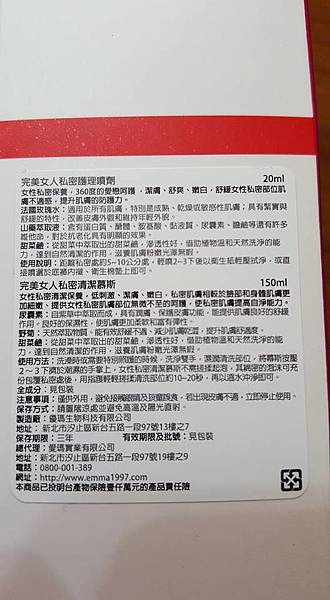 完美女人私密護理噴劑 20ml
女性私密保養，360度的愛戀呵護，潔膚、舒爽、嫩白，舒緩女性私密部位肌
膚不適感，提升肌膚的防護力。
法國玫瑰水：適用於所有肌膚，特別是成熟、乾燥或敏感性肌膚；具有緊實與
舒緩的特性，改善皮膚外觀和維持年輕外貌。
山藥萃取液：含有蛋白質、醣體、胺基酸、黏液質、尿囊素、膽鹼等還有許多
維他命，對於抗老化具有明顯的效果。
甜菜鹼：從甜菜中萃取出的甜菜鹼，滲透性好，借助植物溫和天然洗淨的能
力，達到自然清潔的作用，滋養肌膚粉嫩光澤無瑕。
使用說明：距離私密處約5~10公分處，輕噴2~3下後以衛生紙輕壓拭淨，或直
接噴灑於底褲內襠、衛生棉墊上即可。
完美女人私密清潔慕斯 150ml
女性私密清潔保養，低刺激、潔膚、嫩白，私密肌膚相較於臉部和身體肌膚更
加細嫩、提供女性私密肌膚部位無微不至的呵護，使私密肌膚提高自淨能力。
尿囊素：自紫草中萃取而成，具有潤膚、保護皮膚功能，能提供肌膚良好的舒緩
作用。良好的保濕性，使肌膚更加柔軟和富有彈性。
野菊：天然萃取物質。能有效舒緩不適、減少肌膚乾澀、提升肌膚舒適度。
甜菜鹼：從甜菜中萃取出的甜菜鹼，滲透性好，借助植物溫和天然洗淨的能
力，達到自然清潔的作用，滋養肌膚粉嫩光澤無瑕。
使用方法：洗澡時或需要特別照護的時候，洗淨雙手，濕潤清洗部位，將慕斯按壓
2～3 下擠於潮濕的手掌上，女性私密清潔慕斯不需搓揉起泡，其綿密的泡沫可充
份包覆私密處後，用指腹輕輕搓揉清洗部位約10~20秒，再以溫水沖淨即可。
全成分：見包裝
注意事項：僅供外用，避免接觸眼睛及誤食誤食，若出現皮膚不適，立即停止使用。
保存方式：請置陰涼處並避免高溫及陽光直射。
製造廠：優瑪生物科技有限公司
地址：新北市汐止區新台五路一段97號13樓之7
保存期限：三年 有效期限及批號：見包裝
總代理：愛瑪實業有限公司
地址：新北市汐止區新台五路一段97號19樓之9
電話：0800-001-389
網址：http://www.emma1997.com
本商品已投明台產物保險壹仟萬元的產品責任險